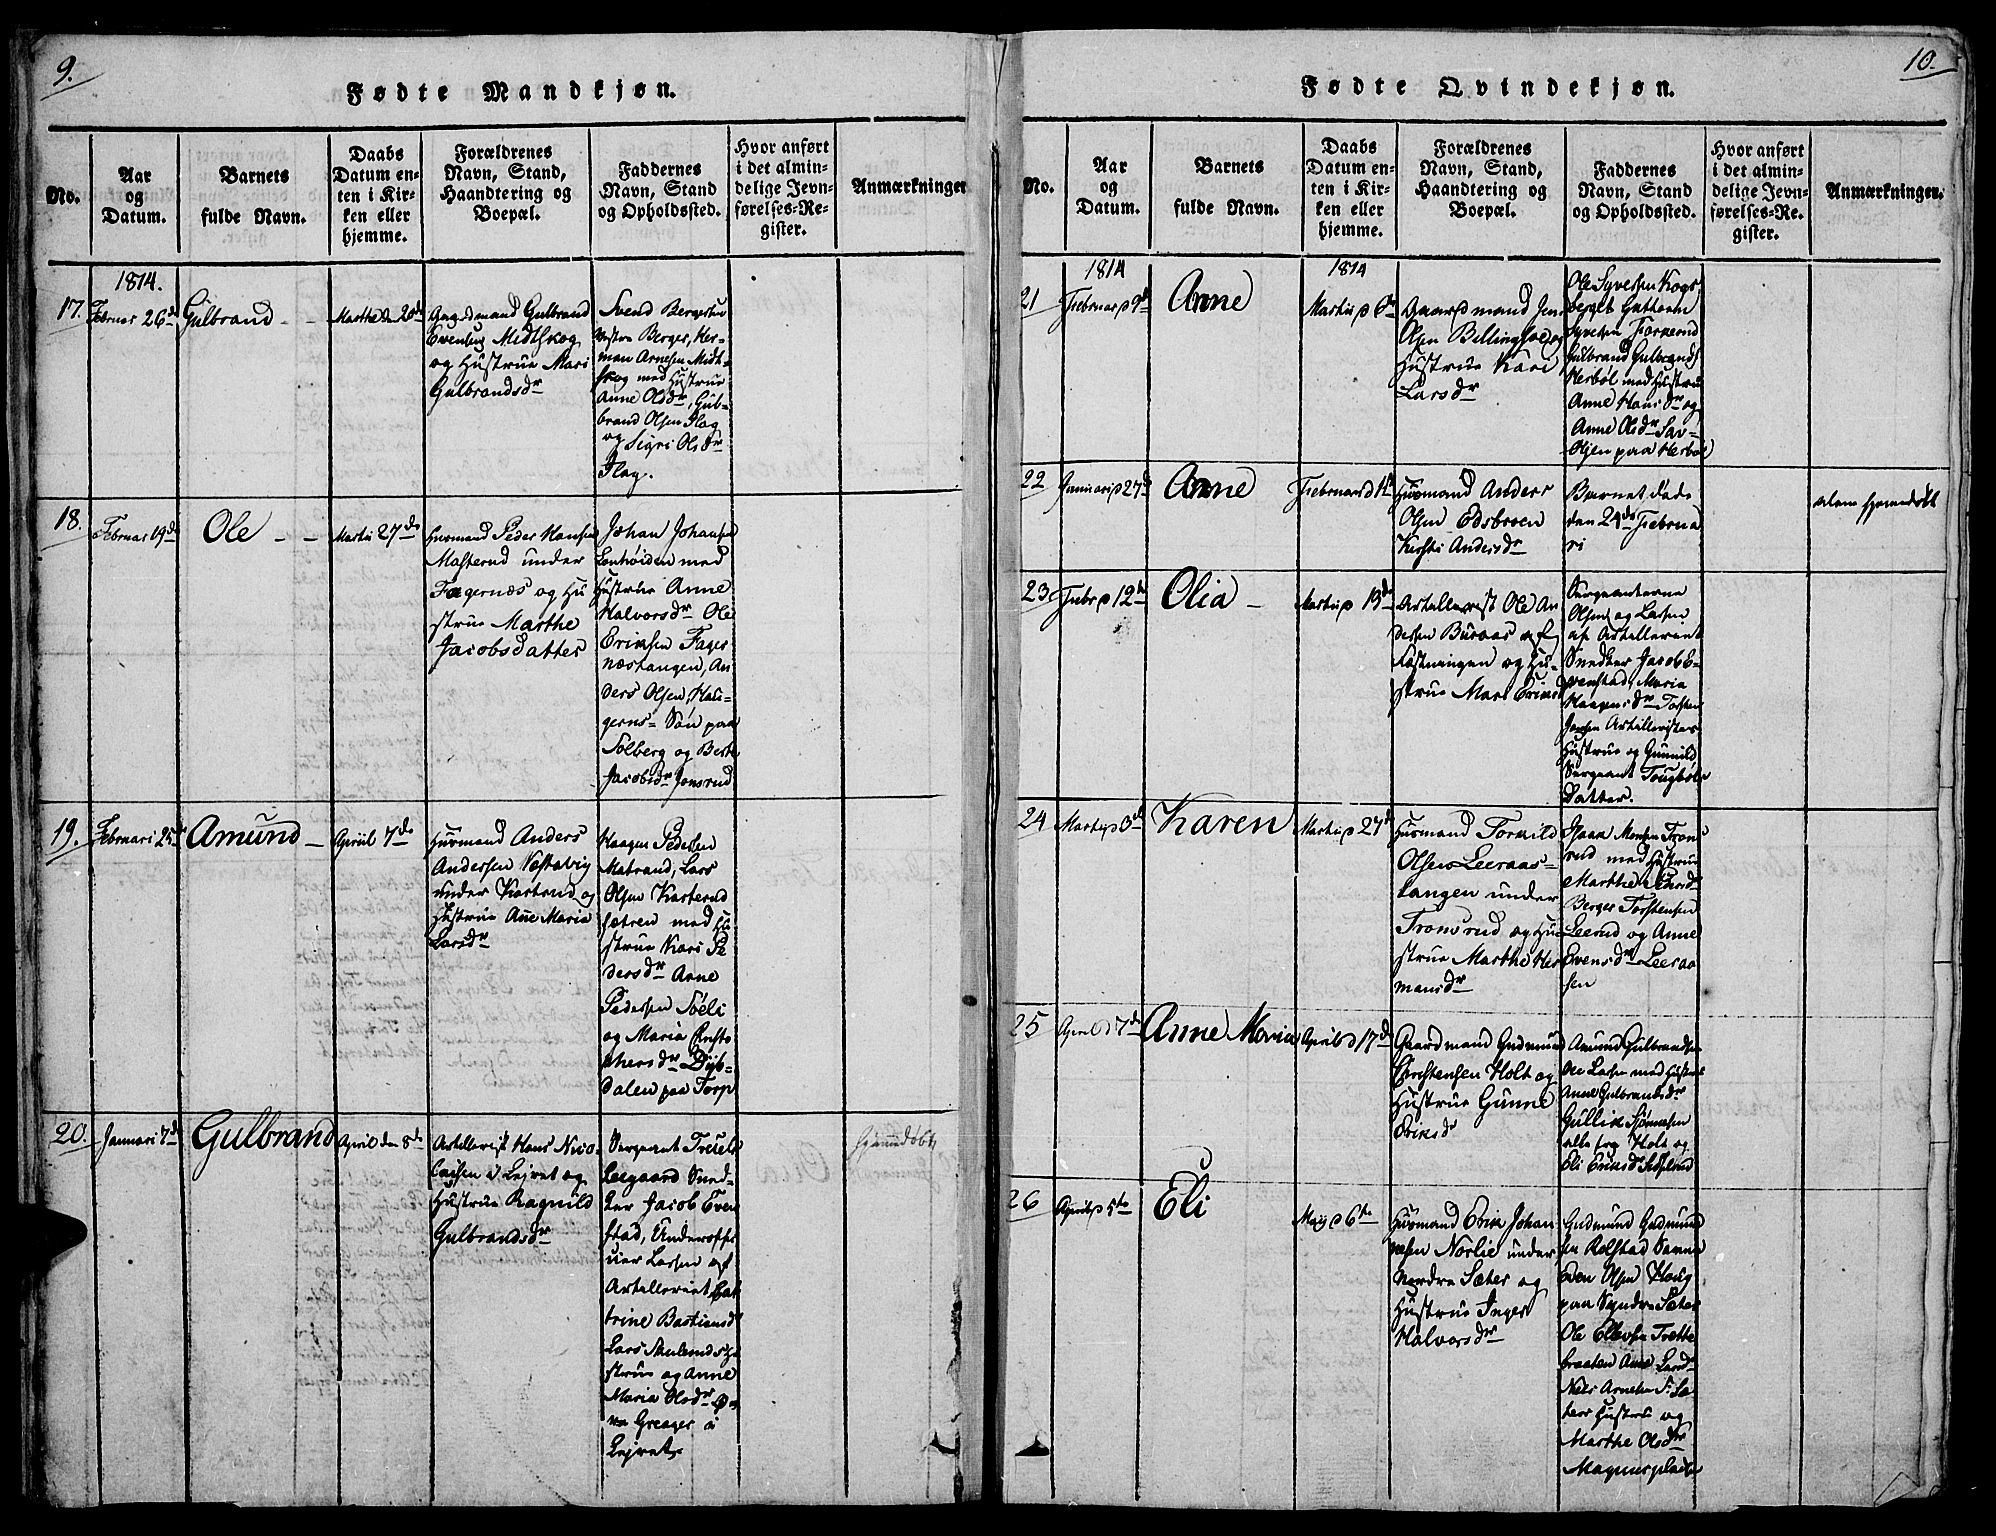 9.
Fødte Mandkjøn.
No.
Aar
og
Datum.
Barnets
fulde Navn.
Daabs
Datum en-
ten i Kir-
ken eller
hjemme.
Forældrenes
Navn, Stand,
Haandtering og
Boepæl.
Faddernes
Navn, Stand
og Opholdssted.
Hvor anført
i det almin-
delige Jevn-
førelses-Re-
gister.
Anmærkninger
1814.
17.
Februar 26d
Gulbrand
Gulbrand
Evensen Midtskog
og Hustrue Mari
Gulbrandsdr
Svend Bergersen
Berger, Her-
man Arnesen Midt-
skog med Hustrue
Anne Olsdr, Gul-
brand Olsen Flag
og Sigri Olsdr
Flag.
18.
Februar 19de
Ole
Martii 27de
Huusmand Peder Hansen
Masterud under
Fagernæs og Hu
strue Marthe
Jacobsdatter
Johan Johansen
med
Hustrue Anne
Halvorsdr Ole
Eriksen Fager
næstangen, An
ders Olsen, Hau-
gerns- Søn paa
Solberg og Berte
Jacobsdr Jonsrud
19.
Februari 25
Amund
April 7de
Huusmand Anders
Andersen
under Karterud og
Hustrue Ane Maria
Larsdr
Haagen Pedersen
Matrand, Lars
Olsen Karterud
sætren med Hu
strue Kari Pe
dersdr Arne
Pedersen Søeli
og Maria Christo
phersdr Dyb-
dalen paa Torp
20.
Januari 7de
Gulbrand
April den 8de
Artillerist Hans Nico-
laisen i Lejret og
Hustrue Ragnild
Gulbrandsdr
Sergeant Truels
Leegaard Sned-
ker Jacob Even
stad, Underoffi
Larsen af
Artilleriet Cat
trine Bastiansdr
Lars
strue og Anne
Maria Olsdr
Greager i
Lejret
hjemmedøbt
10.
Fødte Qvindekjøn.
No.
Aar
og
Datum.
Barnets
fulde Navn.
Daabs
Datum en-
ten i Kir-
ken eller
hjemme.
Forældrenes
Navn, Stand,
Haandtering og
Boepæl.
Faddernes
Navn, Stand
og Opholdssted.
Hvor anført
i det almin-
delige Jevn-
førelses-Re-
gister.
Anmærkninger.
1814
1814
21
Februar 9d
Anne
Martii 6de
Gaardmand Jens
Olsen Billingsloe og
Hustrue Kari
Larsdr
Ole Syversen Kogs
berget Guthorm
Syversen Fornerud
Gulbrand Gulbrands
Herbøl med Hustrue
Anne Hansdr og
Anne Olsdr
Olsen paa Herbøl
22
Januarii 27d
Anne
Huusmand Anders
Olsen Edsbroen
Kirsti Andersdr
Barnet døde
den 24de Februa
ri
alene hjemdøbt
23
Febr 12d
Olia
Martii 13de
Artillerist Ole An
dersen Buraas af
Fæstningen og Hu-
strue Mari Eriksd
Sergeanterne
Olsen og Larsen
af Artilleriet
Snedker Jacob E-
venstad, Maria
Haagensdr Torsten
Jensen Artilleristes
Hustrue og Gunnild
Sergeant Tougbøls
Datter.
24
Martii 3d
Karen
Martii 27d
Huusmand Torkild
Olsen Leeraas-
tangen under
Tronsrud og Hu
strue Marthe Her
mansdr
Isaa Monsen Trons
rud med Hustrue
Marthe Larsdr
Berger Torstensen
Leerud og Anne
Evensdr Leeraa
sen
25
April 7de
Anne Maria
April 17de
Gaardmand Gudmund
Christensen Holt og
Hustrue Gunne
Eriksdr
Amund Gulbrandsen
Ole Larsen med Hustrue
Anne Gulbrandsdr
Gullik Bjørnsen
alle fra Holt og
Eli Eriksdr
26
April 5te
Eli
Maij 6te
Huusmand Erik Johan
nesen Norlie under
Nordre Sæter og
Hustrue Inger
Halvorsdr
Gudmund Gudmund
sen Rolstad Samme
Even Olsen Houg
paa Syndre Sæter
Ole Ellevsen Trætte
braaten Anne Larsdr
Niels Arnesen S: Sæ
ters Hustrue og
Marthe Olsdr
Magnerpladsen